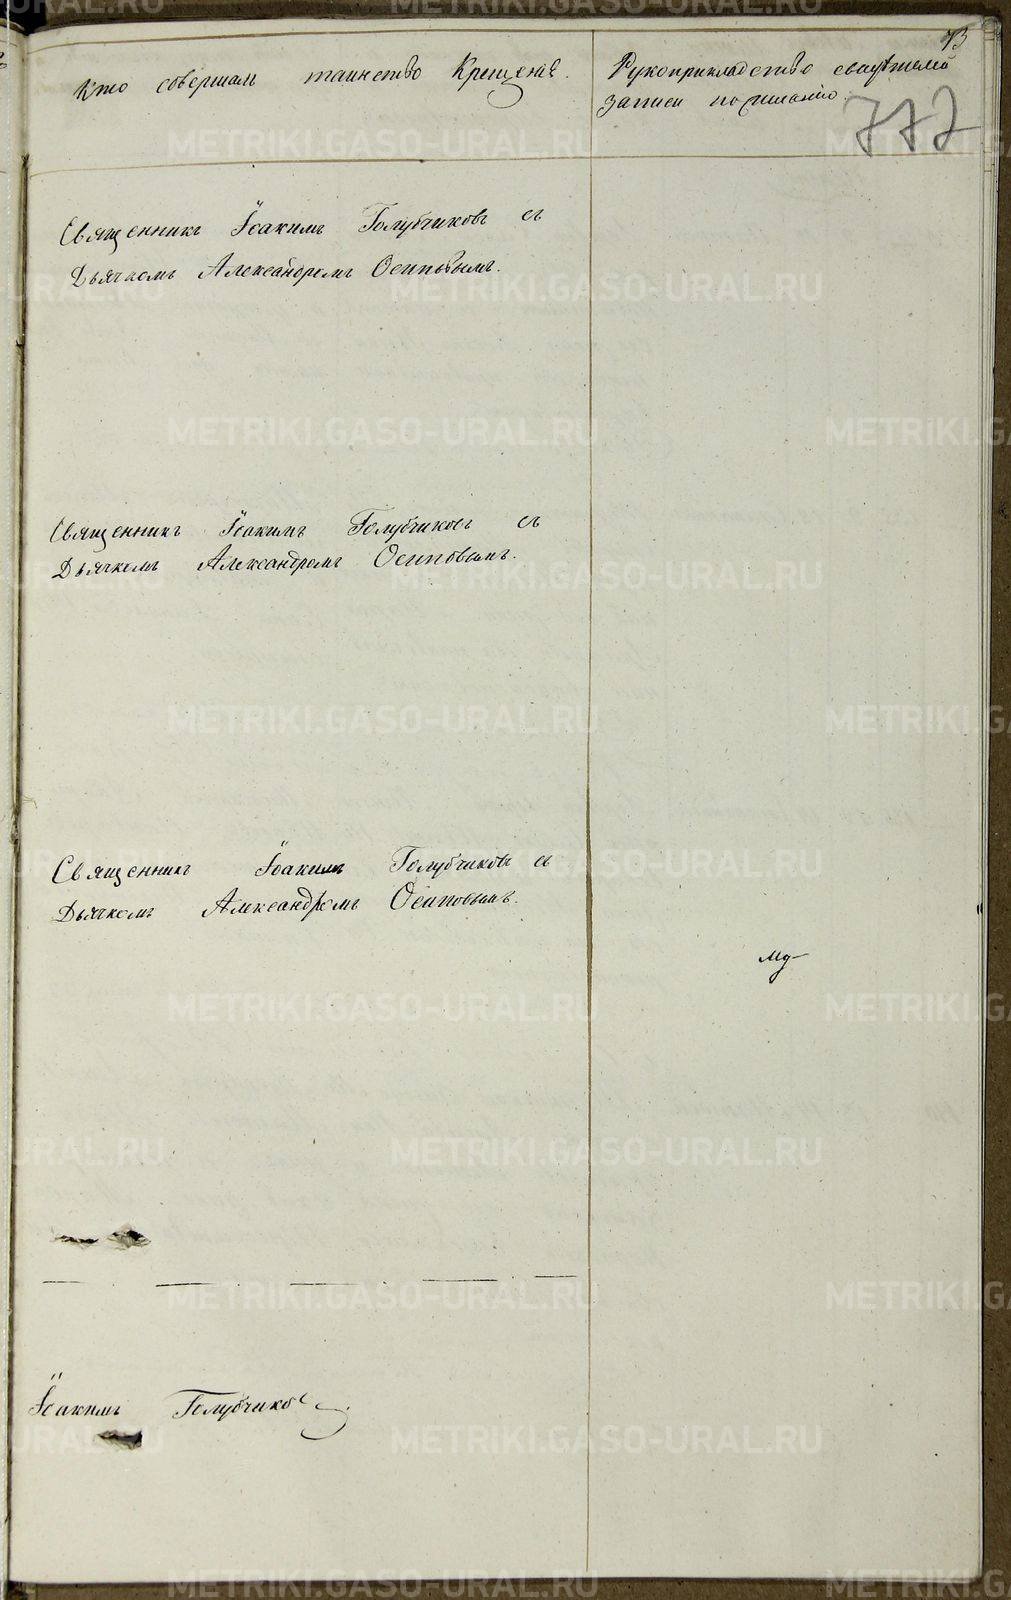 73
Кто совершалъ таинство Крещенія.
Рукоприкладство свидѣтелей
записи по желанію.
777
Священникъ Іоакимъ Голубчиковъ съ
Дьячкомъ Александромъ Осиповымъ.
Священникъ Іоакимъ Голубчиковъ съ
Дьячкомъ Александромъ Осиповымъ.
Священникъ Іоакимъ Голубчиковъ съ
Дьячкомъ Александромъ Осиповымъ.
Іоакимъ Голубчиковъ
METRIKI.GASO-URAL.RU